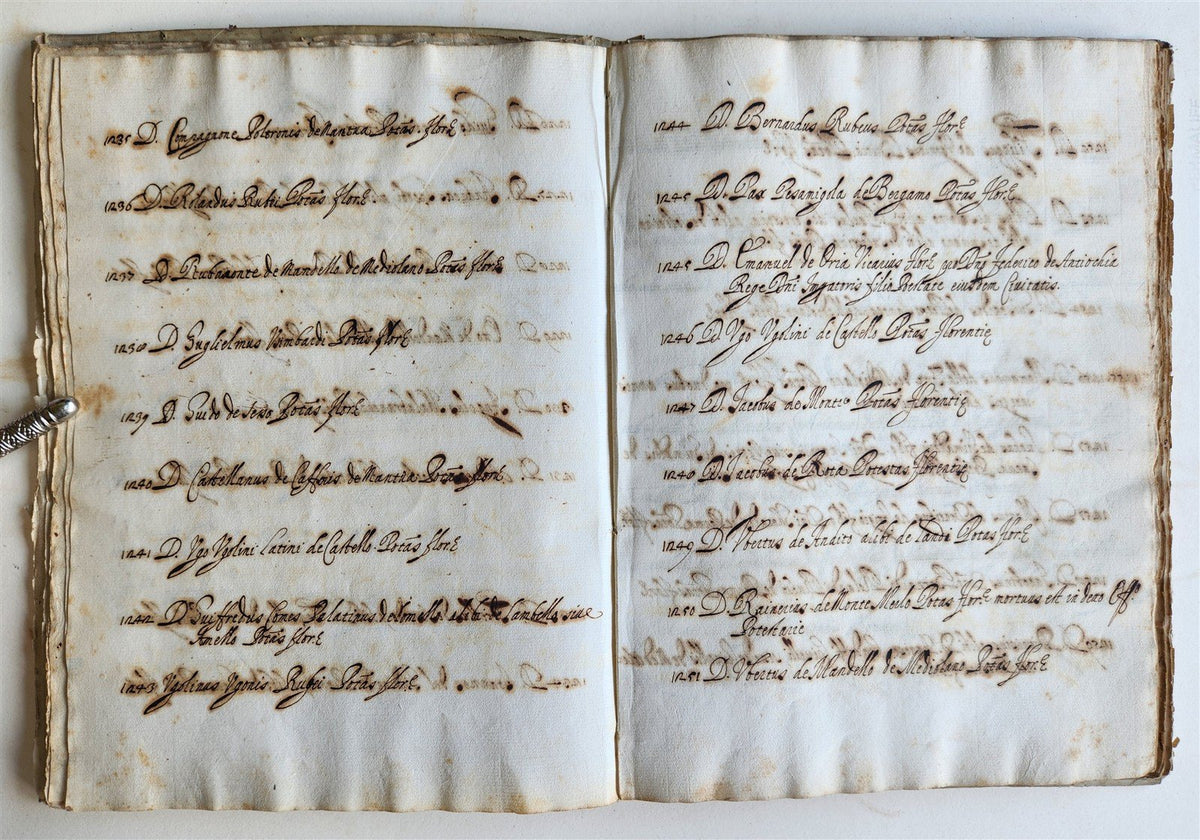 1235 D. Compagnone Poltronis de Mantua Potãs. florẽ
1236 D. Rolandus Rubei Potãs florẽ.
1237 D. Rubaconte de Mandello de Mediolano Potãs florẽ
1238 D. Guglielmus Potãs florẽ
1239 D. Guido de Sesso Potãs florẽ
1240 D. Castellanus de Caffaris de Mantua Potãs florẽ
1241 D. Ugo Ugolini Latini de Castello Potãs florẽ
1242 D. Guiffredus Comes Palatinus de Lomello alibi de Lambello siue
Amello Potãs florẽ
1243 Ugolinus Ugonis Rubei Potãs florẽ.
1244 D. Bernardus Rubeus Potãs florẽ
1245 D. Pax Pesamigola de Bergamo Potãs florẽ
1245 D. Emanuel de Oria Vicarius florẽ pro Dño Federico de Antiochia
Rege Dñi Impatoris filio Potestate eiusdem Civitatis.
1246 D. Ugo Ugolini de Castello Potãs florentię
1247 D. Iacobus de Monte Potãs florentię
1248 D. Iacobus de Rota Potestas florentię
1249 D. Ubertus de Andito alibi de Lando Potãs florẽ
1250 D. Rainerius de Monte Merlo Potãs florẽ mortuus est in dicto Off.
Potestarie
1251 D. Ubertus de Mandello de Mediolano Potãs florẽ